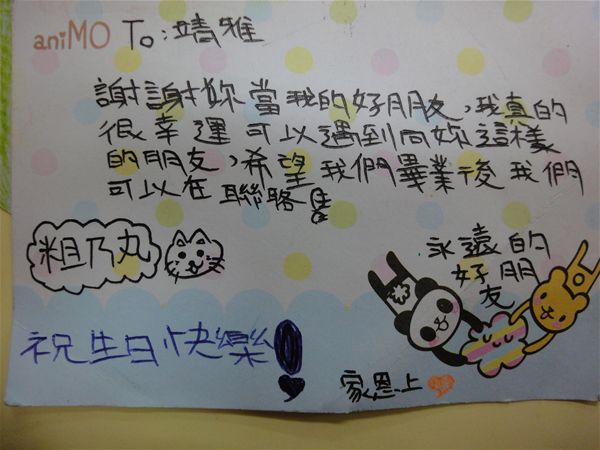 aniMO To:靖雅
謝謝妳當我的好朋友,我真的
很幸運可以遇到向妳這樣
的朋友,希望我們畢業後我們
可以在聯絡!
粗乃丸
永遠的
好朋
友
祝生日快樂!
家恩上